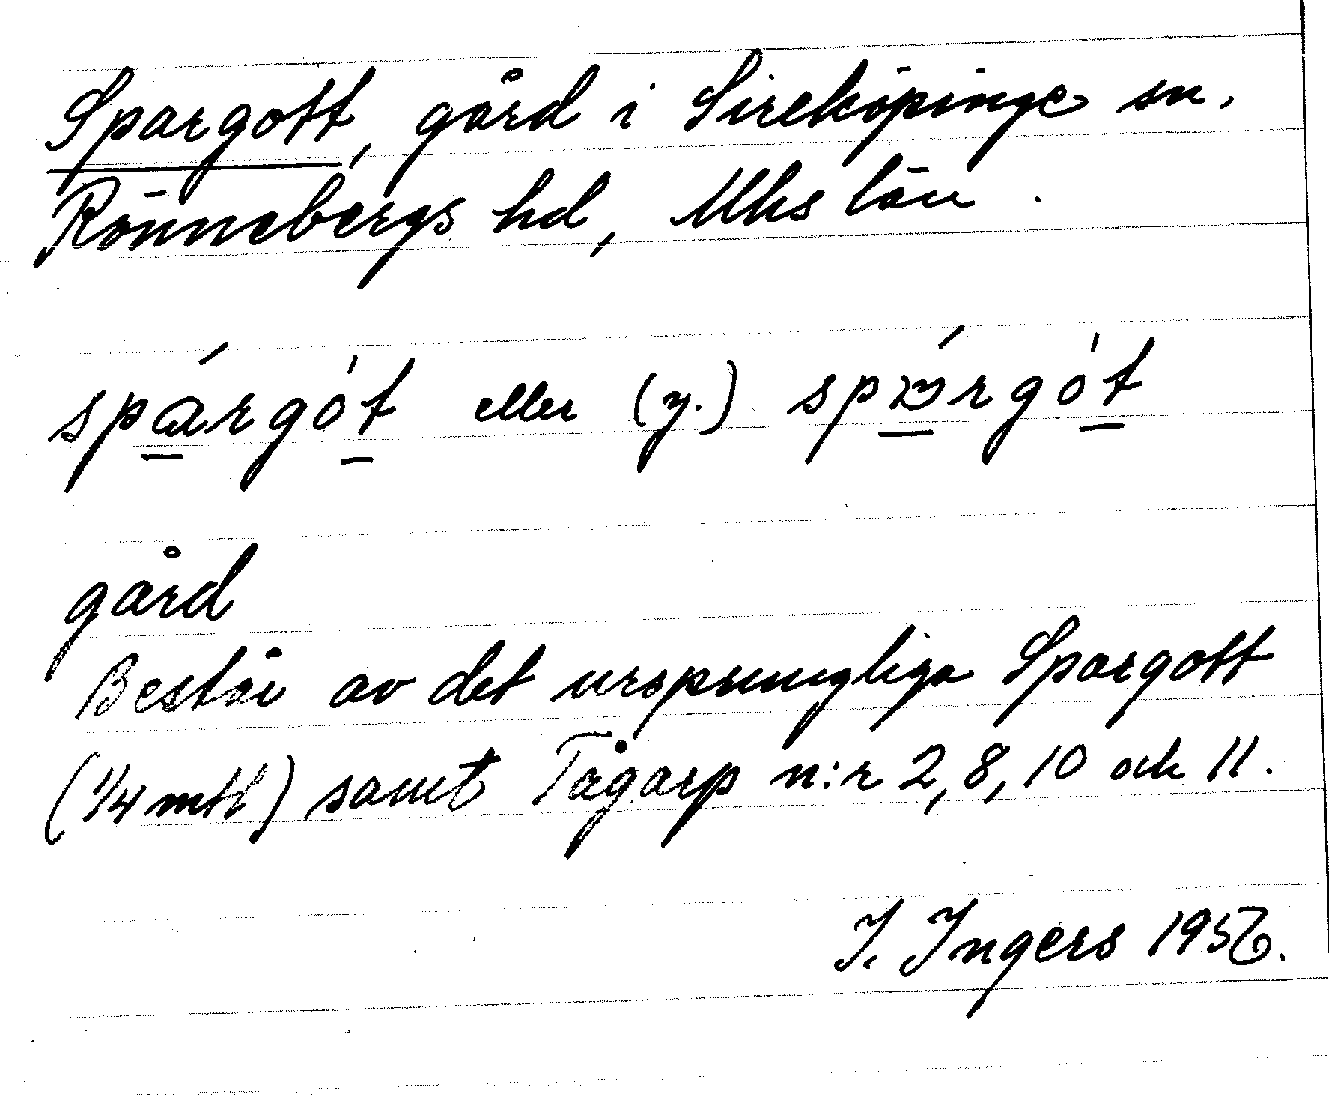 Spargott, gård i Sireköpinge sn.
Rönnebergs hd, Mhs län.
spárgót eller (y.) spórgót
gård
Består av det ursprungliga Spargott
(1/4 mtl) samt Tågarp n:r 2, 8, 10 och 11.
I. Ingers 1956.